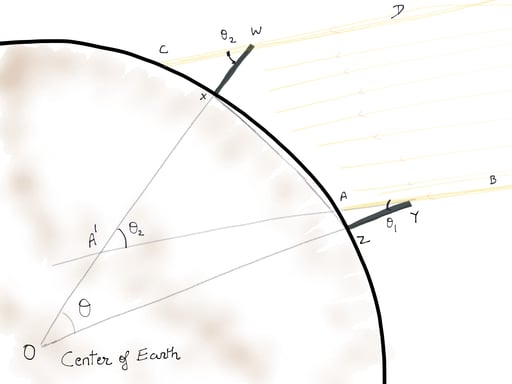 D
θ₂ W
C
X
B
A
θ₁ Y
Z
A' θ₂
θ
O Center of Earth